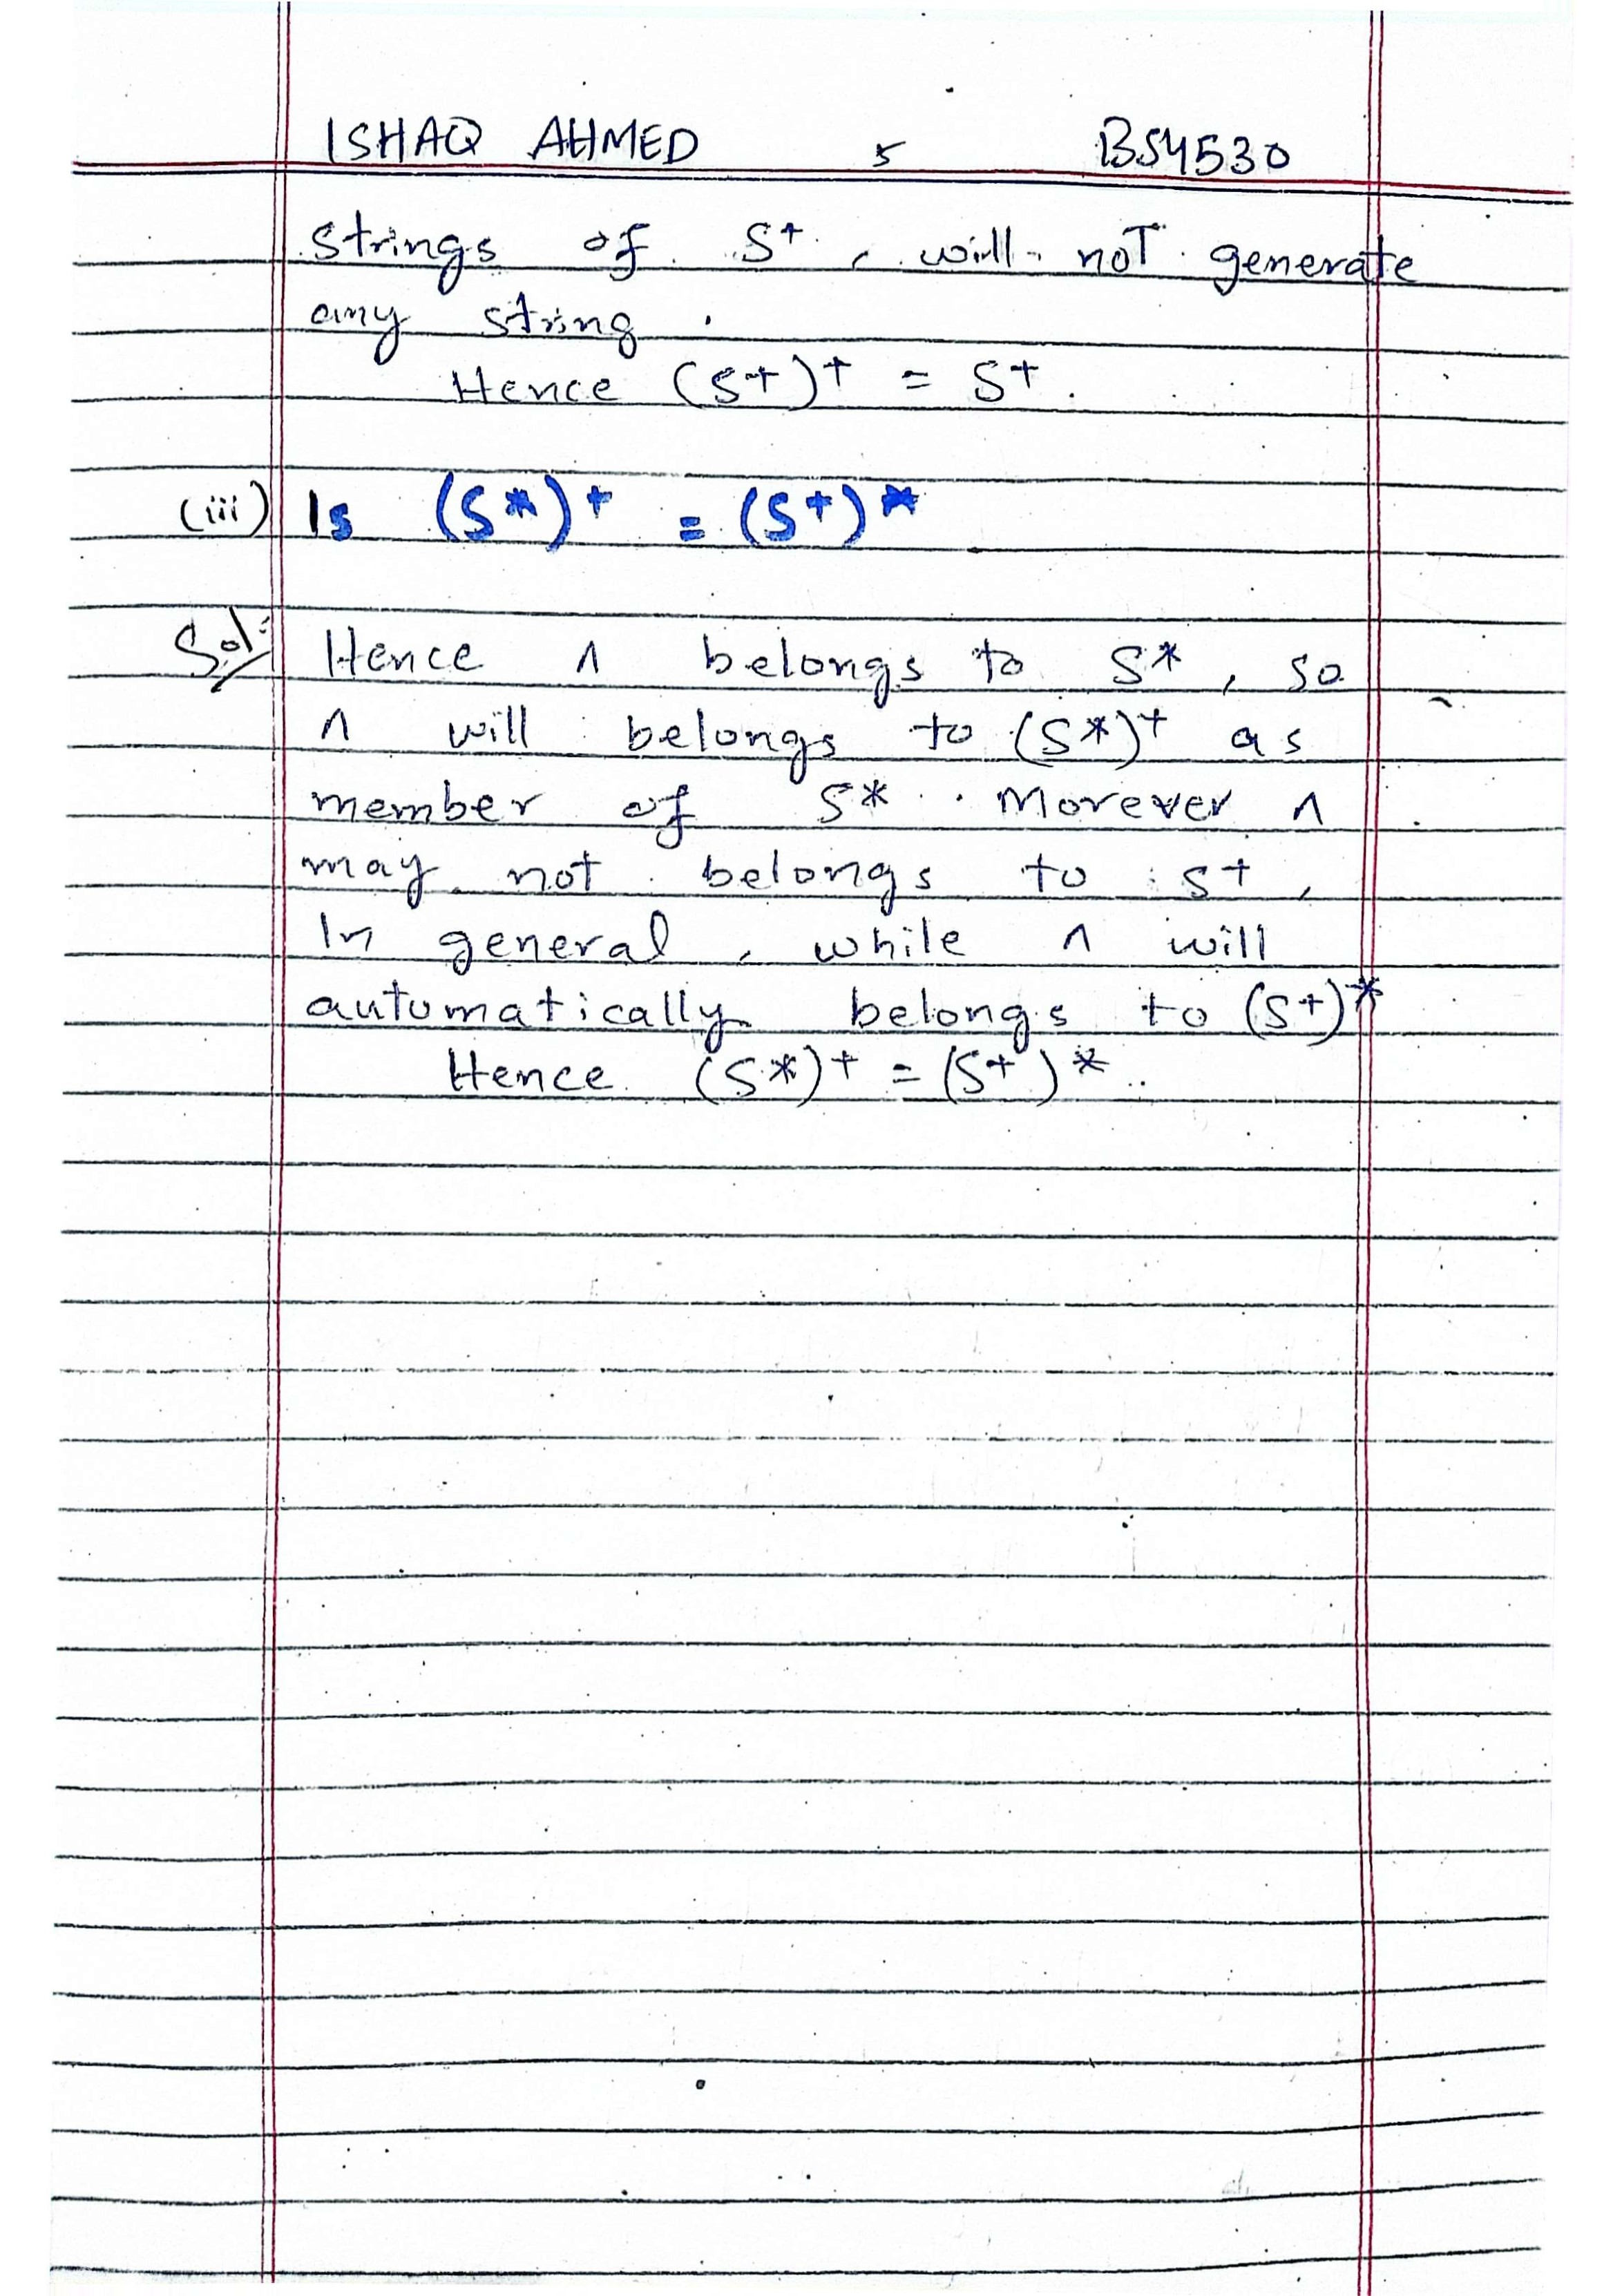 ISHAQ AHMED 5 BS4530
strings of S+, will not generate
any string.
Hence (S+)+ = S+.
(iii) Is (S*)+ = (S+)*
Sol: Hence Λ belongs to S*, so
Λ will belongs to (S*)+ as
member of S*. Morever Λ
may not belongs to S+,
In general, while Λ will
automatically belongs to (S+)*
Hence (S*)+ = (S+)*.